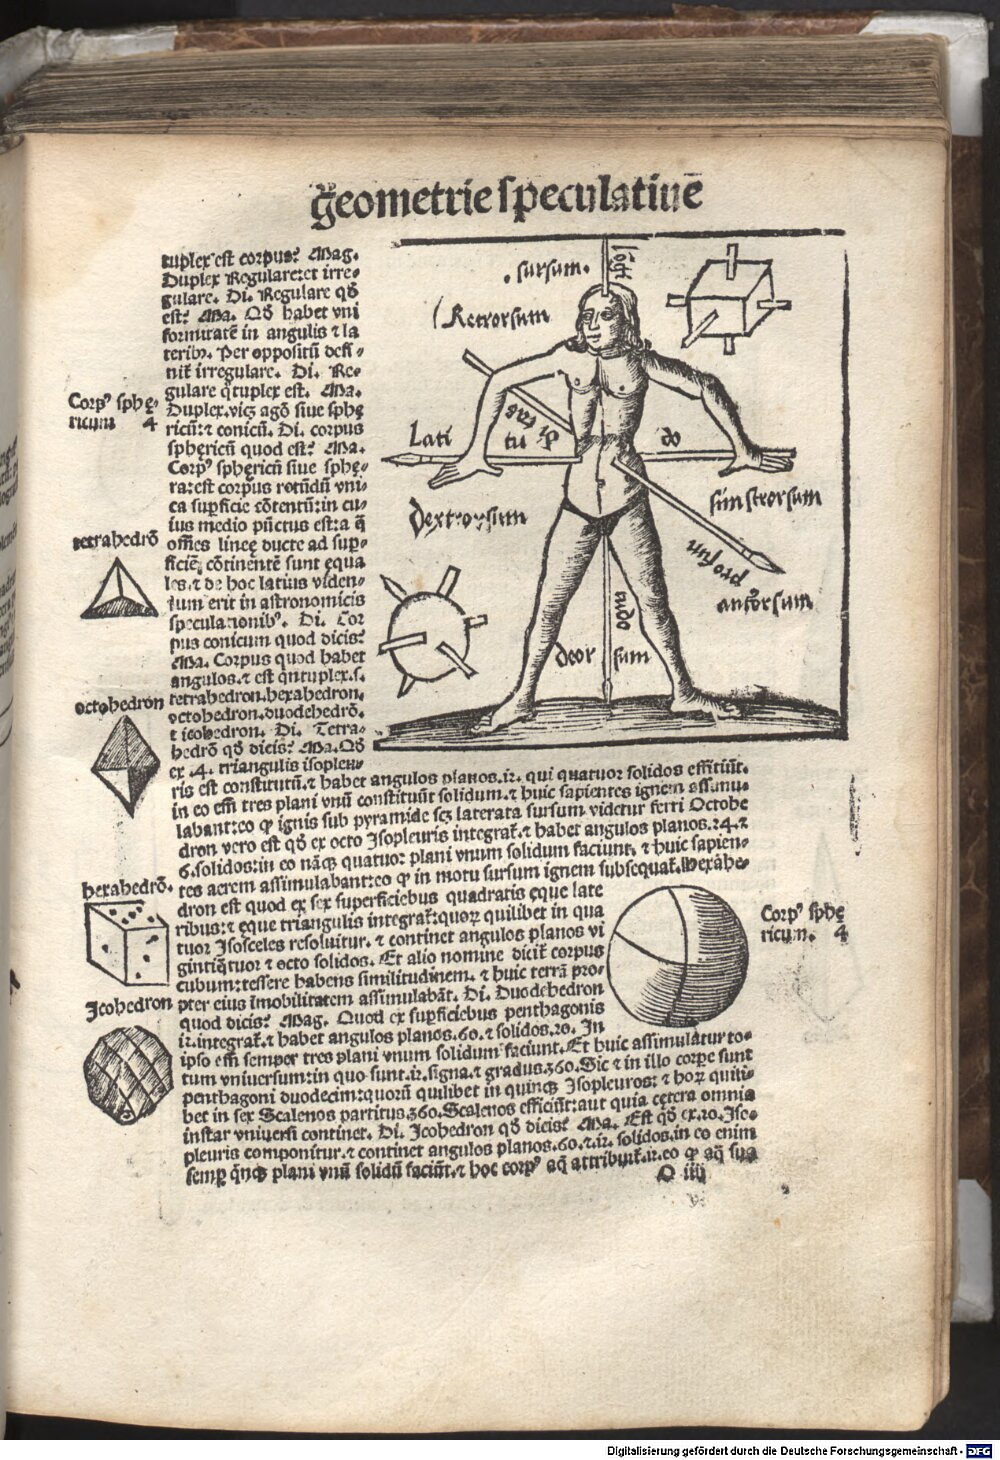 Geometrie speculatiuē
tuplex est corpus? Mag.
Duplex Regulare: et irre-
gulare. Di. Regulare qd
est? Ma. Qd habet vni
formitatē in angulis & la
terib9. Per oppositū defi-
nit irregulare. Di. Re-
gulare qtuplex est. Ma.
Duplex. vicz agō siue sphe
ricū: & conicū. Di. corpus
sphęricū quod est? Ma.
Corp9 sphęricū siue sphę-
ra: est corpus rotūdū vni-
ca supficie cōtentū: in cu-
ius medio pūctus est: a q
om̄es lineę ducte ad sup-
ficiē cōtinentē sunt equa
les. & de hoc latius viden-
tum erit in astronomicis
speculationib9. Di. Cor
pus conicum quod dicis?
Ma. Corpus quod habet
angulos. & est qntuplex. s.
tetrahedron. hexahedron.
octohedron. duodehedrō.
& icohedron. Di. Tetra-
hedrō qd dicis? Ma. Qd
ex .4. triangulis isopleu-
ris est constitutū. & habet angulos planos. 12. qui quatuor solidos efficiūt.
in eo em̄ tres plani vnū constituūt solidum. & huic sapientes ignem assimu-
labant: eo q ignis sub pyramide scz laterata sursum videtur ferri Octohe
dron vero est qd ex octo Isopleuris integrat. & habet angulos planos. 24. &
6. solidos: in eo nāq quatuor plani vnum solidum faciunt. & huic sapien-
tes aerem assimulabant: eo q in motu sursum ignem subsequat. Hexahe-
dron est quod ex sex superficiebus quadratis ęque late
ribus: & ęque triangulis integrat: quoꝝ quilibet in qua
tuor Isosceles resoluitur. & continet angulos planos vi
gintiqtuor & octo solidos. Et alio nomine dicit corpus
cubum: tessere habens similitudinem. & huic terrā pro-
pter eius īmobilitatem assimulabāt. Di. Duodehedron
quod dicis? Mag. Quod ex supficiebus penthagonis
12. integrat. & habet angulos planos. 60. & solidos. 20. In
ipso em̄ semper tres plani vnum solidum faciunt. Et huic assimulatur to-
tum vniuersum: in quo sunt. 12. signa. & gradus. 360. Sic & in illo corpe sunt
penthagoni duodecim: quorū quilibet in quinqz Isopleuros: & hoꝝ quili-
bet in sex Scalenos partitus. 360. Scalenos efficiūt: aut quia cetera omnia
instar vniuersi continet. Di. Icohedron qd dicis? Ma. Est qd ex. 20. Iso-
pleuris componitur. & continet angulos planos. 60. & 12. solidos. in eo enim
semp qnqz plani vnū solidū faciūt. & hoc corp9 aq attribuit. 12. eo q aq sua
O iiij
Corp9 sphę-
ricum 4
tetrahedrō
octohedron
hexahedrō.
Icohedron
Corp9 sphę
ricum. 4
.sursum.
lōgi
Retrorsum
Lati
tu
di tas
do
Dextrorsum
sinistrorsum
profun
antrorsum
tudo
deor sum
Digitalisierung gefördert durch die Deutsche Forschungsgemeinschaft - DFG